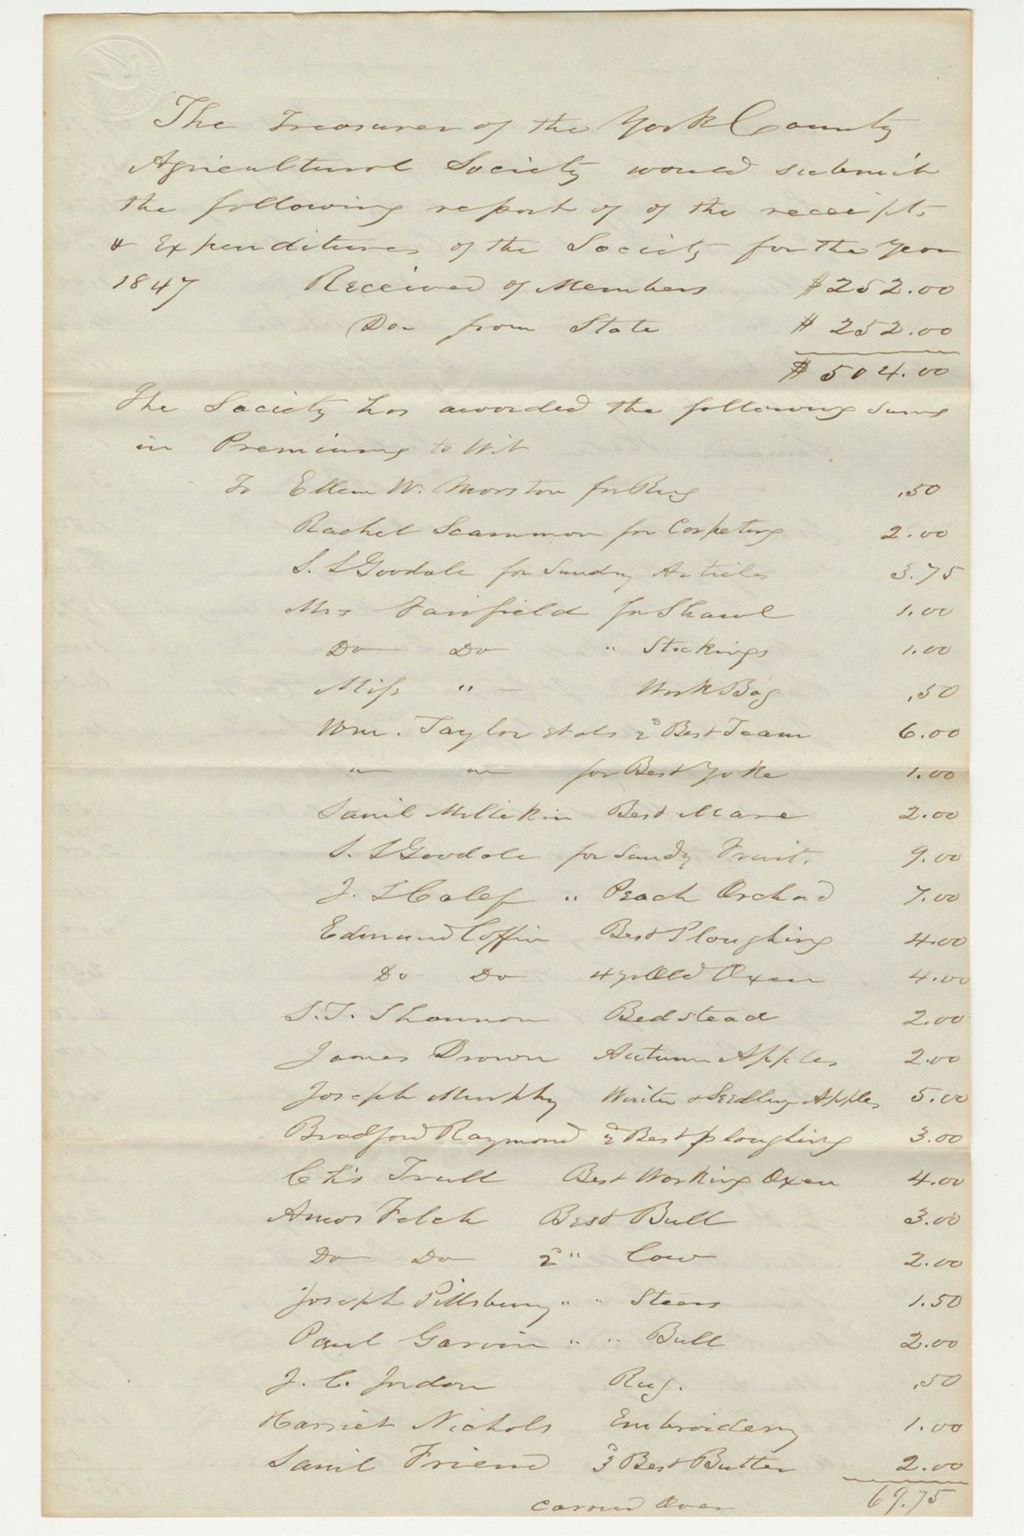 The Treasurer of the York County
Agricultural Society would submit
the following report of of the receipts
& Expenditures of the Society for the Year
1847 Received of Members $252.00
Do- from State $ 252.00
$ 504.00
The Society has awarded the following sums
in Premiums to Wit
To Ellen W. Morston for Rug .50
Rachel Scammon for Carpeting 2.00
S. L Goodale for Sundry Articles 3.75
Mrs Fairfield for Shawl 1.00
Do Do " Stockings 1.00
Miss " - Work Bag .50
Wm. Taylor et als 2d Best Team 6.00
" " for Best Yoke 1.00
Saml Millikin Best Mare 2.00
S. L Goodale for Sundy Fruit. 9.00
J. S Calef " Peach Orchad 7.00
Edmund Coffin Best Ploughing 4.00
Do Do 4 yr Old Oxen 4.00
S. T. Shannon Bedstead 2.00
James Brown Autumn Apples 2.00
Joseph Murphy Winter & Seedling Apples 5.00
Bradford Raymond 2d Best ploughing 3.00
Chs Trull Best Working Oxen 4.00
Amos Felch Best Bull 3.00
Do Do 2d " Cow 2.00
Joseph Pillsbury " " Steers 1.50
Paul Garvin " " Bull 2.00
J. C. Jordon Rug. .50
Harriet Nichols Embroidery 1.00
Saml Friend 3d Best Butter 2.00
carried Over 69.75